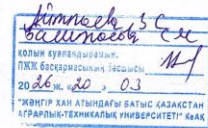 Айтпаева З С
Балтпаева С М
ҚОЛЫН КУӘЛАНДЫРАМЫН.
ПЖЖ басқармасының бастығы
20 26 ж. «20» 03
"ЖӘҢГІР ХАН АТЫНДАҒЫ БАТЫС ҚАЗАҚСТАН
АГРАРЛЫҚ-ТЕХНИКАЛЫҚ УНИВЕРСИТЕТІ" КеАҚ